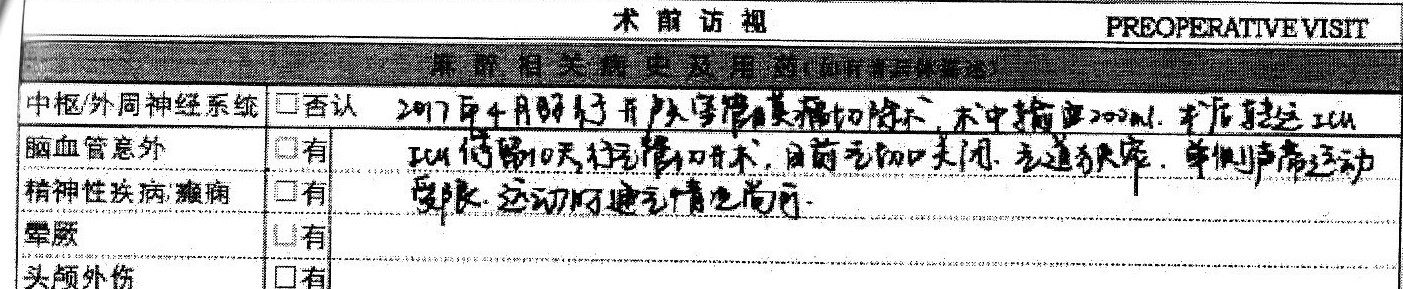 术前访视 PREOPERATIVE VISIT
麻醉相关病史及用药(如有者具体描述)
中枢/外周神经系统 □否认 2017年4月时行开颅 管膜瘤切除术,术中输血200ml.术后转运ICU
脑血管意外 □有 ICU停留10天,行气管切开术.目前气切口关闭.气道狭窄.单侧声带运动
精神性疾病/癫痫 □有 受限.运动时通气情况尚可.
晕厥 □有
头颅外伤 □有